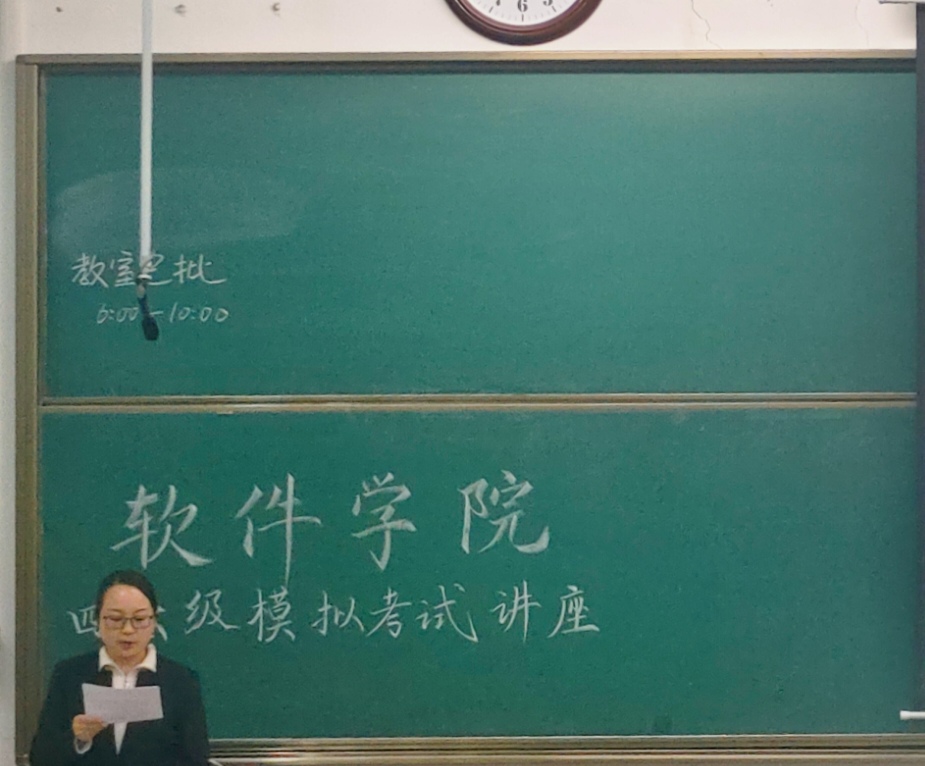 6
教室已批
6:00-10:00
软件学院
四六级模拟考试讲座